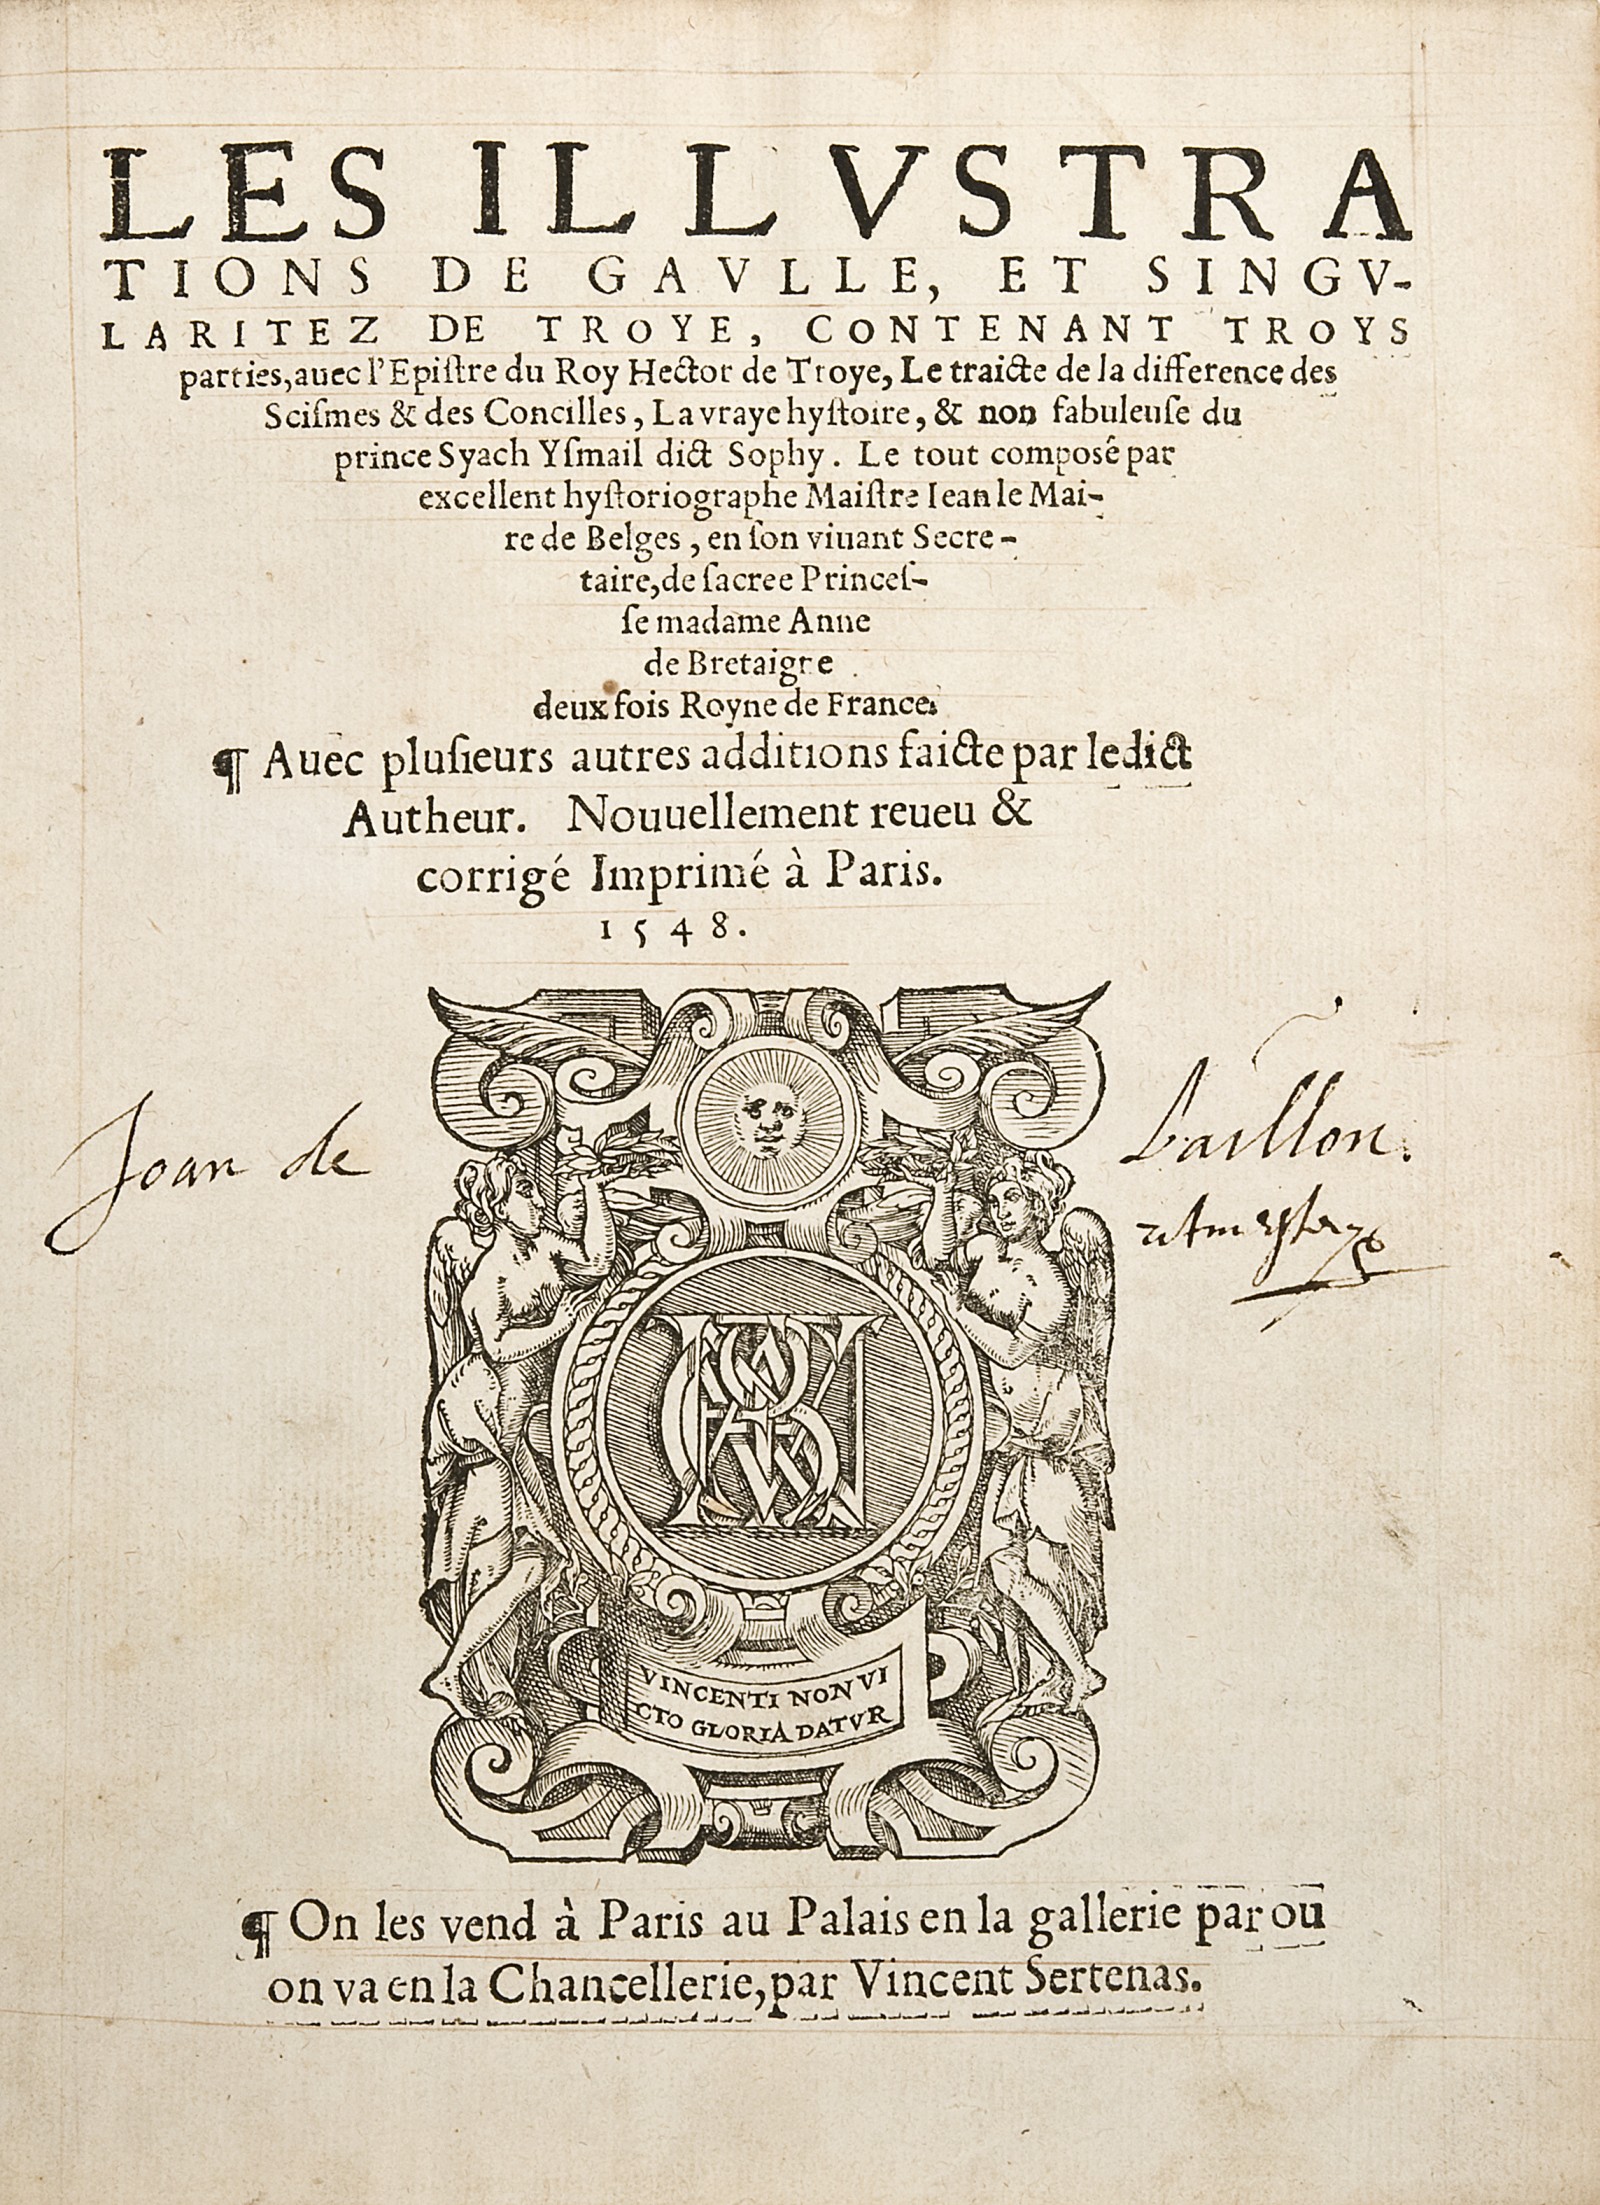 LES ILLVSTRA
TIONS DE GAVLLE, ET SINGV-
LARITEZ DE TROYE, CONTENANT TROYS
parties, auec l'Epiſtre du Roy Hector de Troye, Le traicte de la difference des
Sciſmes & des Concilles, La vraye hyſtoire, & non fabuleuſe du
prince Syach Yſmail dict Sophy. Le tout composé par
excellent hyſtoriographe Maiſtre Iean le Mai-
re de Belges, en ſon viuant Secre-
taire, de ſacree Princeſ-
ſe madame Anne
de Bretaigne
deux fois Royne de France.
¶ Auec pluſieurs autres additions faicte par ledict
Autheur. Nouuellement reueu &
corrigé Imprimé à Paris.
1548.
Joan de Baillon.
VINCENTI NON VI
CTO GLORIA DATVR
¶ On les vend à Paris au Palais en la gallerie par ou
on va en la Chancellerie, par Vincent Sertenas.